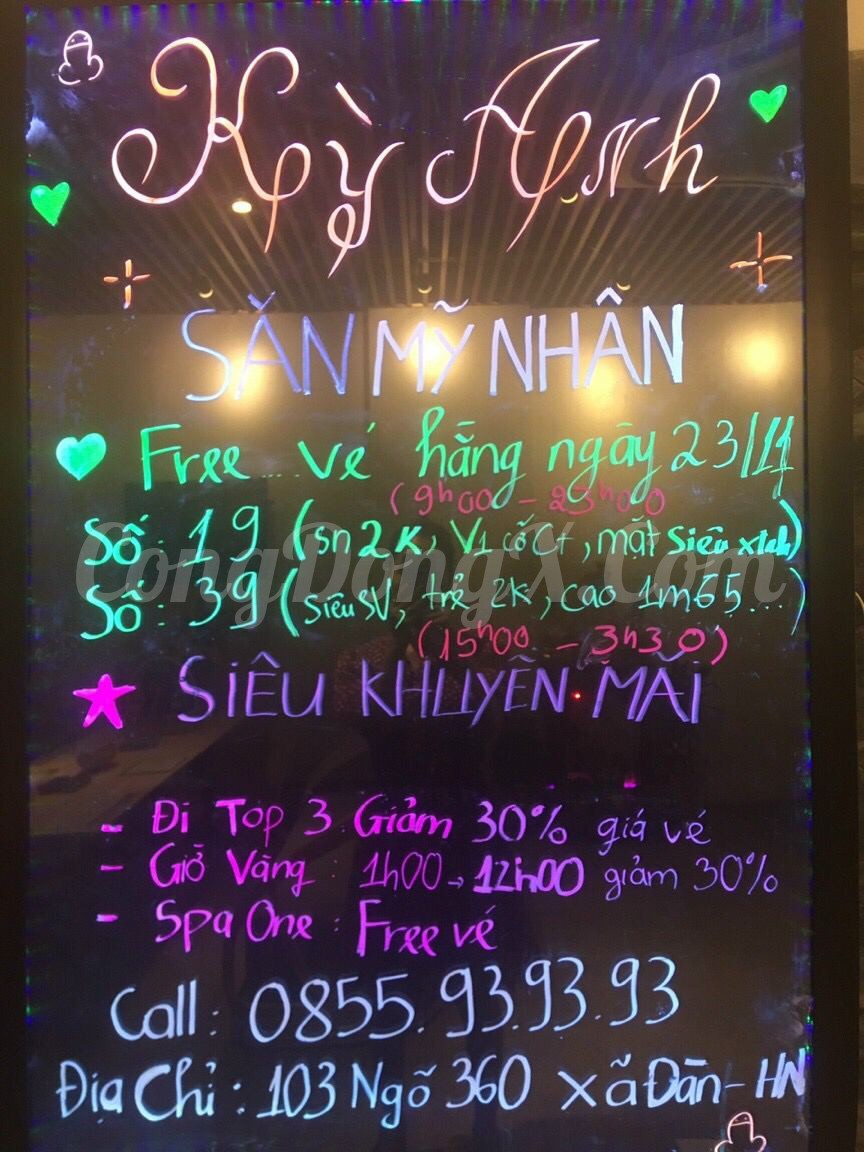 Kỳ Anh
SĂN MỸ NHÂN
Free vé hằng ngày 23/11
(9h00 - 23h00
Số: 19 (sn2K, V1 cố Ct, mặt Siêu xinh)
CongDongX.Com
Số: 39 (Siêu SV, trẻ 2K, cao 1m65...)
(15h00 - 3h30)
SIÊU KHUYẾN MÃI
- Đi Top 3 Giảm 30% giá vé
- Giờ Vàng: 1h00 → 12h00 giảm 30%
- Spa One: Free vé
Call: 0855.93.93.93
Địa Chỉ: 103 Ngõ 360 Xã Đàn - HN